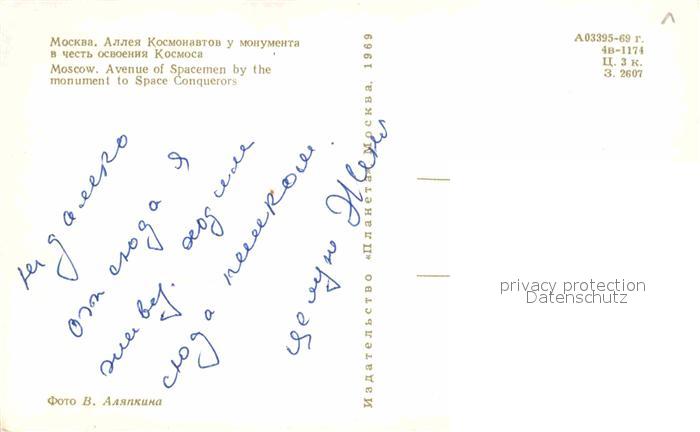 Москва. Аллея Космонавтов у монумента
в честь освоения Космоса
Moscow. Avenue of Spacemen by the
monument to Space Conquerors
А03395-69 г.
4в-1174
Ц. 3 к.
З. 2607
не далеко
от сюда я
живу. ходили
сюда пешком.
целую
Издательство «Планета» Москва. 1969
privacy protection
Datenschutz
Фото В. Аляпкина